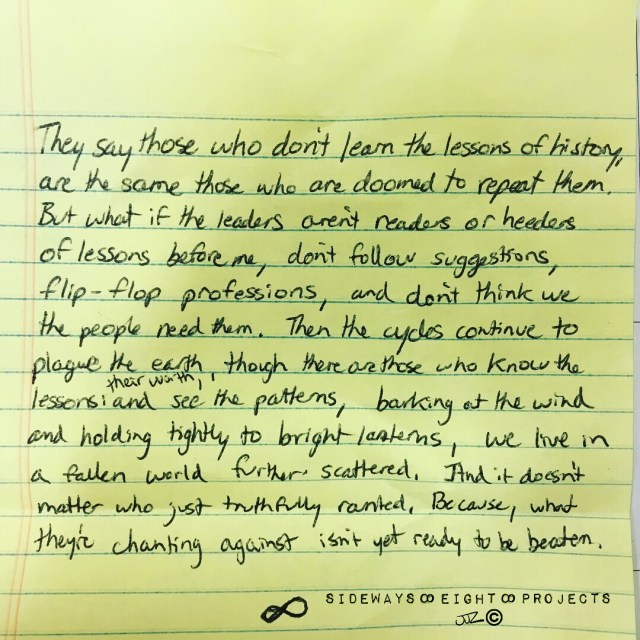 They say those who don't learn the lessons of history,
are the same those who are doomed to repeat them.
But what if the leaders aren't readers or heeders
of lessons before me, don't follow suggestions,
flip-flop professions, and don't think we
the people need them. Then the cycles continue to
plague the earth, though there are those who know the
their worth,
lessons: and see the patterns, barking at the wind
and holding tightly to bright lanterns, we live in
a fallen world further scattered. And it doesn't
matter who just truthfully ranted. Because, what
they're chanting against isn't yet ready to be beaten.
∞ SIDEWAYS∞EIGHT∞PROJECTS
JTZ ©